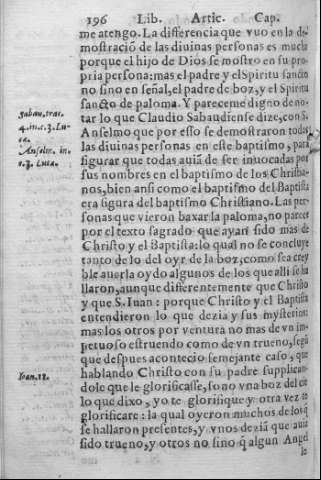 196 Lib. Artic. Cap.
me atengo. La differencia que vuo en la de-
mostració de las diuinas personas es mucha
porque el hijo de Dios se mostro en su pro
pria persona: mas el padre y el Spiritu sancto
no sino en señal, el padre de boz, y el Spiritu
sancto de paloma. Y pareceme digno de no-
tar lo que Claudio Sabaudiense dize, con S.
Anselmo que por esso se demostraron todas
las diuinas personas en este baptismo, para
figurar que todas auiã de ser inuocadas por
sus nombres en el baptismo de los Christia-
nos, bien ansi como el baptismo del Baptista
era figura del baptismo Christiano. Las per-
sonas que vieron baxar la paloma, no parece
por el texto sagrado que ayan sido mas de
Christo y el Baptista: lo qual no se concluye
tanto de lo del oyr de la boz, como sea crey
ble auerla oydo algunos de los que alli se ha
llaron, aunque differentemente que Christo
y que S. Iuan: porque Christo y el Baptista
entendieron lo que dezia y sus mysterios:
mas los otros por ventura no mas de vn im-
petuoso estruendo como de vn trueno, segũ
que despues acontecio semejante caso, que
hablando Christo con su padre supplican-
dole que le glorificasse, sono vna boz del cie
lo que dixo, yo te glorifique y otra vez te
glorificare: la qual oyeron muchos de los q̃
se hallaron presentes, y vnos dezia que auia
sido trueno, y otros no sino q̃ algun Angel
le
sabau. trac.
4. in. c. 3. Lu-
cæ.
Anselm. in.
c. 3. Lucæ.
Ioan. 12.